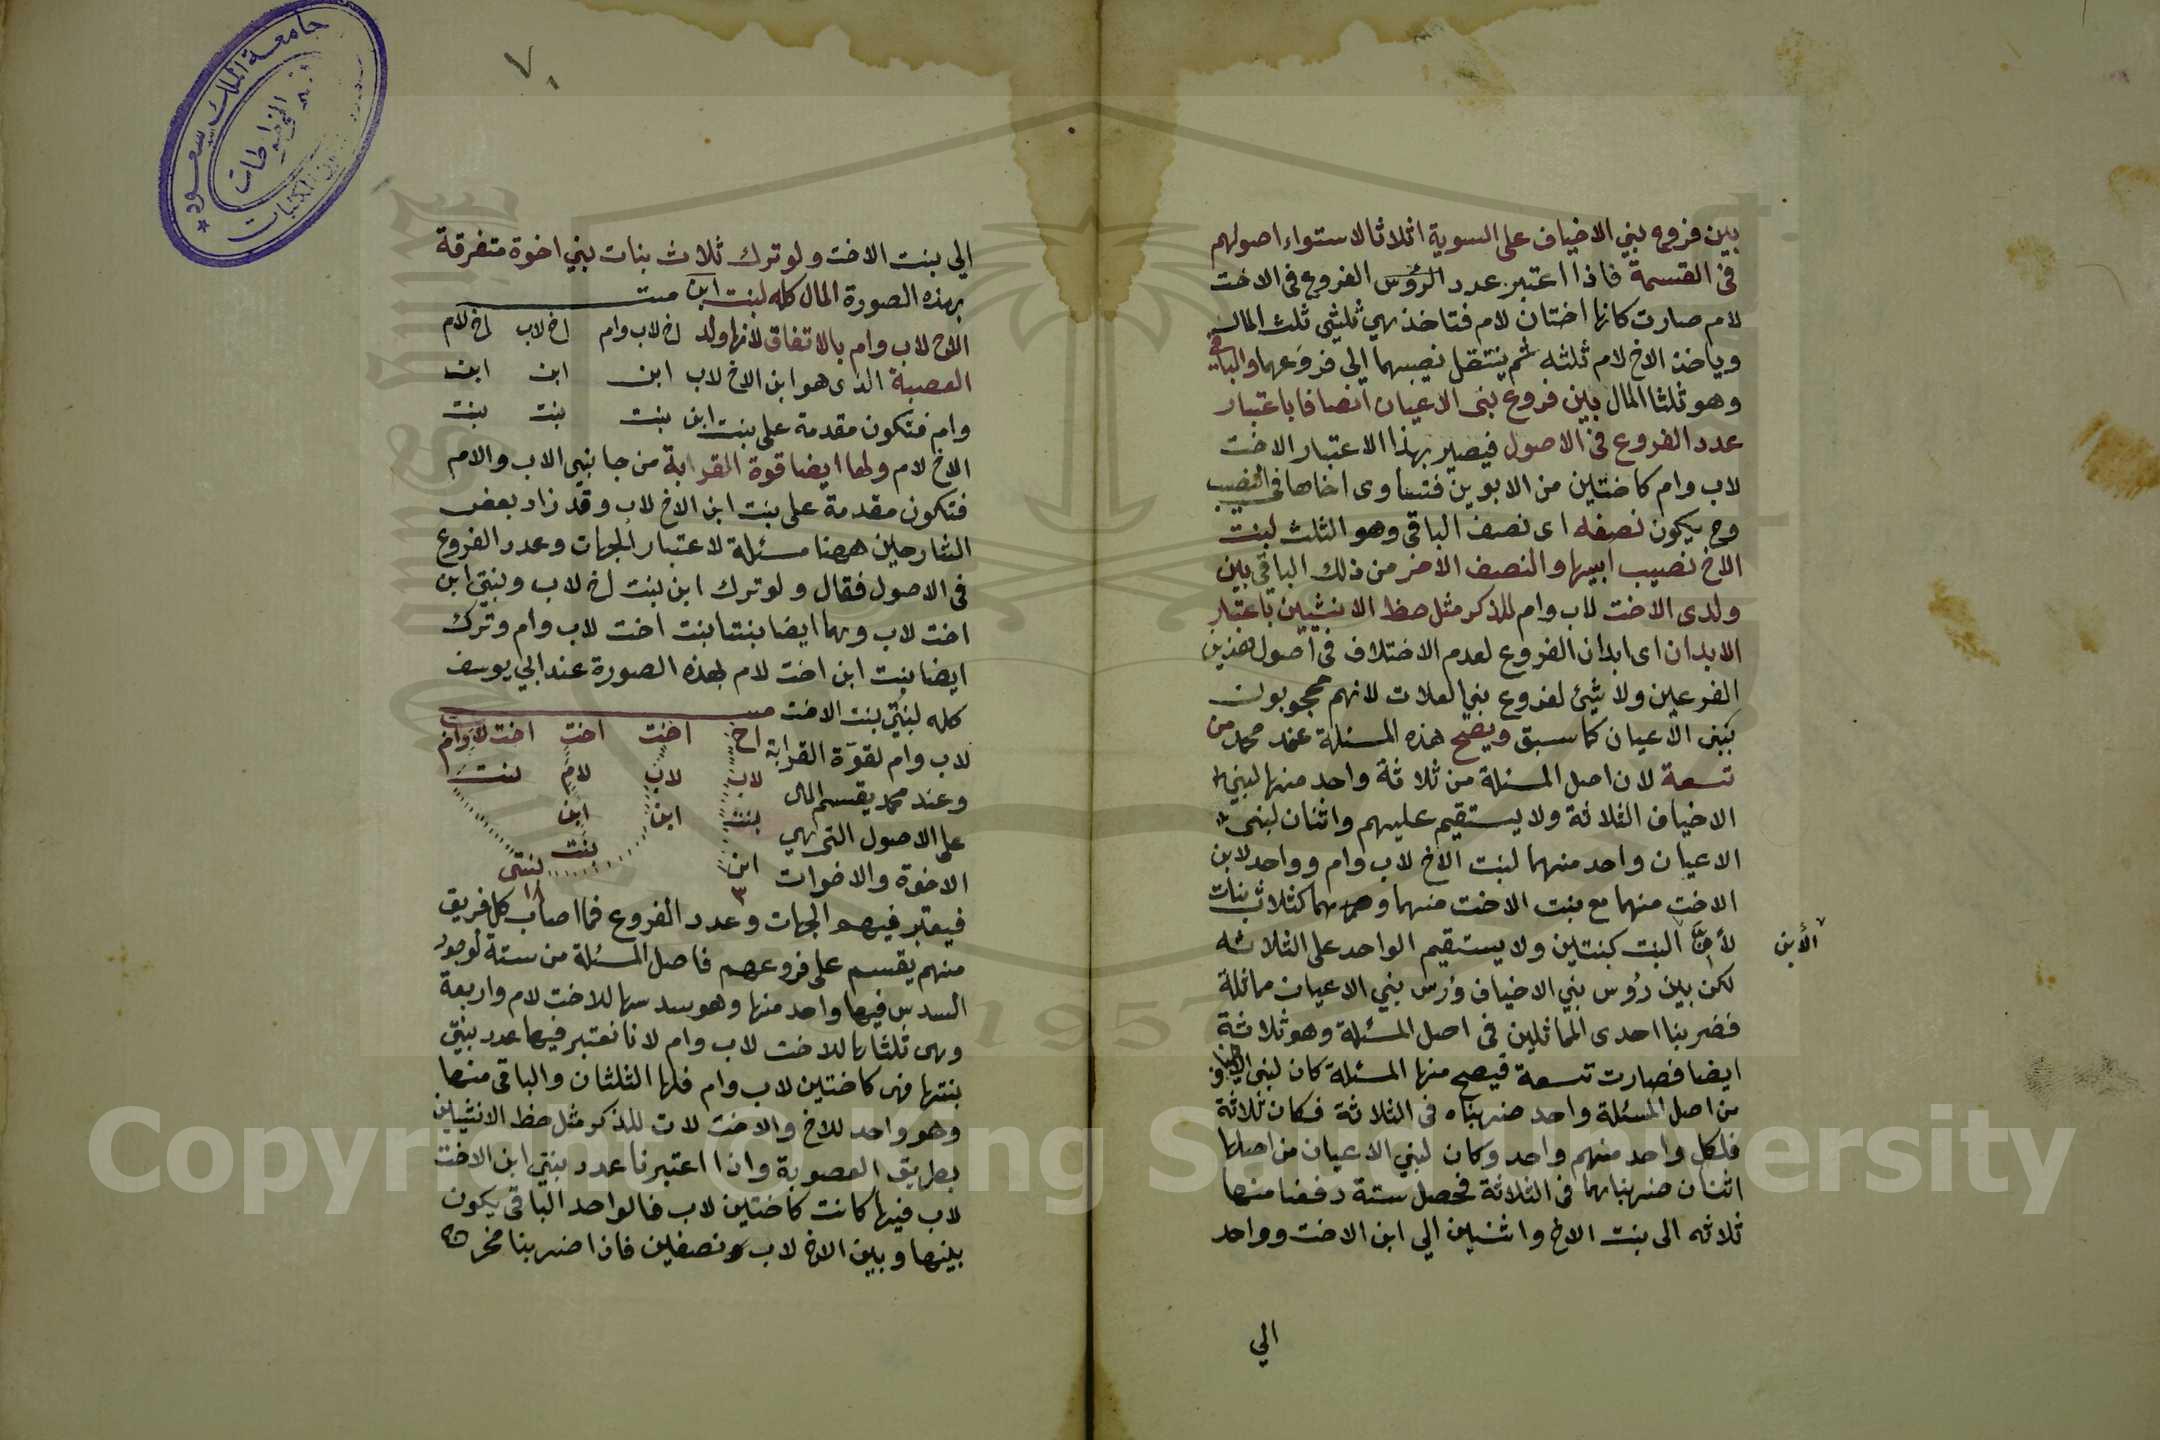 بين فروع بني الاخياف على السوية اثلاثا لاستواء اصولهم
في القسمة فاذا اعتبر عدد الرؤس الفروع في الاخت
لام صارت كانها اختان لام فتاخذ هي ثلثي ثلث المال
وياخذ الاخ لام ثلثه ثم ينتقل نصيبهما الى فروعهما والباقي
وهو ثلثا المال بين فروع بنى الاعيان انصافا باعتبار
عدد الفروع في الاصول فيصير بهذا الاعتبار الاخت
لاب وام كاختين من الابوين فتساوى اخاها في النصيب
وح يكون نصفه اى نصف الباقي وهو الثلث لبنت
الاخ نصيب ابيها والنصف الاخر من ذلك الباقي بين
ولدى الاخت لاب وام للذكر مثل حظ الانثيين باعتبار
الابدان اى ابدان الفروع لعدم الاختلاف في اصول هذين
الفرعين ولا شيئ لفروع بني العلات لانهم محجوبون
ببنى الاعيان كما سبق ويصح هذه المسئلة عند محمد من
تسعة لان اصل المسئلة من ثلاثة واحد منها لبني
الاخياف الثلاثة ولا يستقيم عليهم واثنان لبنى
الاعيان واحد منهما لبنت الاخ لاب وام وواحد لابن
الاخت منهما مع بنت الاخت منهما وهما كثلاث بنات
لأن البت كبنتين ولا يستقيم الواحد على الثلاثه
الأبن
لكن بين رؤس بني الاخياف ورؤس بني الاعيان مماثلة
فضربنا احدى المماثلين في اصل المسئلة وهو ثلاثة
ايضا فصارت تسعة فيصح منها المسئلة كان لبنى الاخياف
من اصل المسئلة واحد ضربناه في الثلاثة فكان ثلاثة
فلكل واحد منهم واحد وكان لبني الاعيان من اصلها
اثنان ضربناهما في الثلاثة فحصل ستة دفعنا منها
ثلاثه الى بنت الاخ واثنين الي ابن الاخت وواحد
الي
٧٠
الي بنت الاخت ولو ترك ثلاث بنات بني اخوة متفرقة
بهذه الصورة المال كله لبنت ابن ميت
الاخ لاب وام بالاتفاق لانها ولد اخ لاب وام اخ لاب اخ لام
العصبة الذى هو ابن الاخ لاب ابن ابن ابن
وام فتكون مقدمة على بنت ابن بنت بنت بنت
الاخ لام ولها ايضا قوة القرابة من جانبي الاب والام
فتكون مقدمة على بنت ابن الاخ لاب وقد زاد بعض
الشارحين ههنا مسئلة لاعتبار الجهات وعدد الفروع
في الاصول فقال ولو ترك ابن بنت اخ لاب وبنتي ابن
اخت لاب وهما ايضا بنتا بنت اخت لاب وام وترك
ايضا بنت ابن اخت لام بهذه الصورة عند ابي يوسف
كله لبنتي بنت الاخت ميت
لاب وام لقوة القرابة اخ اخت اخت اخت لاب وام
وعند محمد يقسم المال لاب لاب لام بنت
على الاصول التي هي بنت ابن ابن
الاخوة والاخوات ابن بنت بنتى
٣
فيعتبر فيهم الجهات وعدد الفروع فما اصاب كل فريق
منهم يقسم على فروعهم فاصل المسئلة من ستة لوجود
السدس فيها واحد منها وهو سدسها للاخت لام واربعة
وهى ثلثاها للاخت لاب وام لانا نعتبر فيها عدد بنتي
بنتها فهى كاختين لاب وام فلها الثلثان والباقي منها
وهو واحد للاخ والاخت لاب للذكر مثل حظ الانثيين
بطريق العصوبة واذا اعتبرنا عدد بنتي ابن الاخت
لاب فيها كانت كاختين لاب فالواحد الباقي يكون
بينها وبين الاخ لاب نصفين فاذا ضربنا مخرج
جامعة الملك سعود
المخطوطات
المكتبات
1957
Copyright © King Saud University